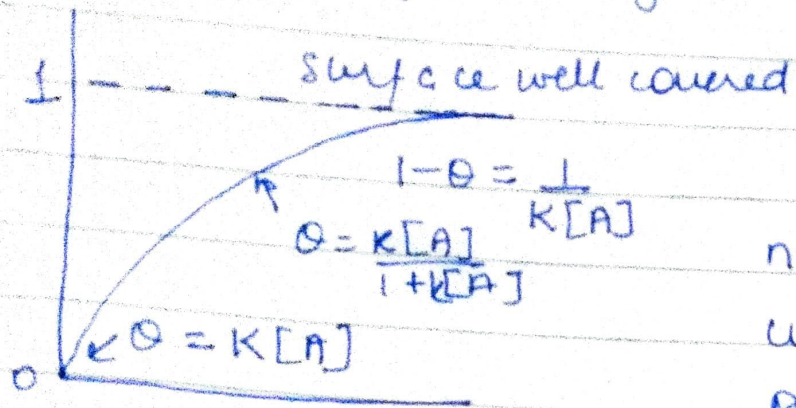 surface well covered
1
1-θ = 1/K[A]
θ = K[A]/1+K[A]
n
θ = K[A]
u
0